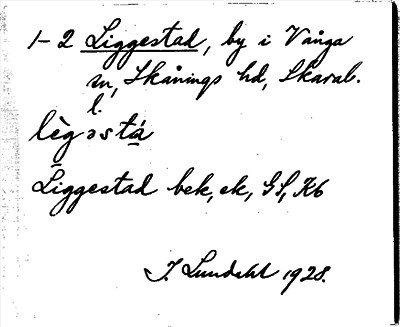 1-2 Liggestad, by i Vånga
sn, Skånings hd, Skarab.
l.
lègəstá
Liggestad bek, ek, GS, K6
I. Lundahl 1928.